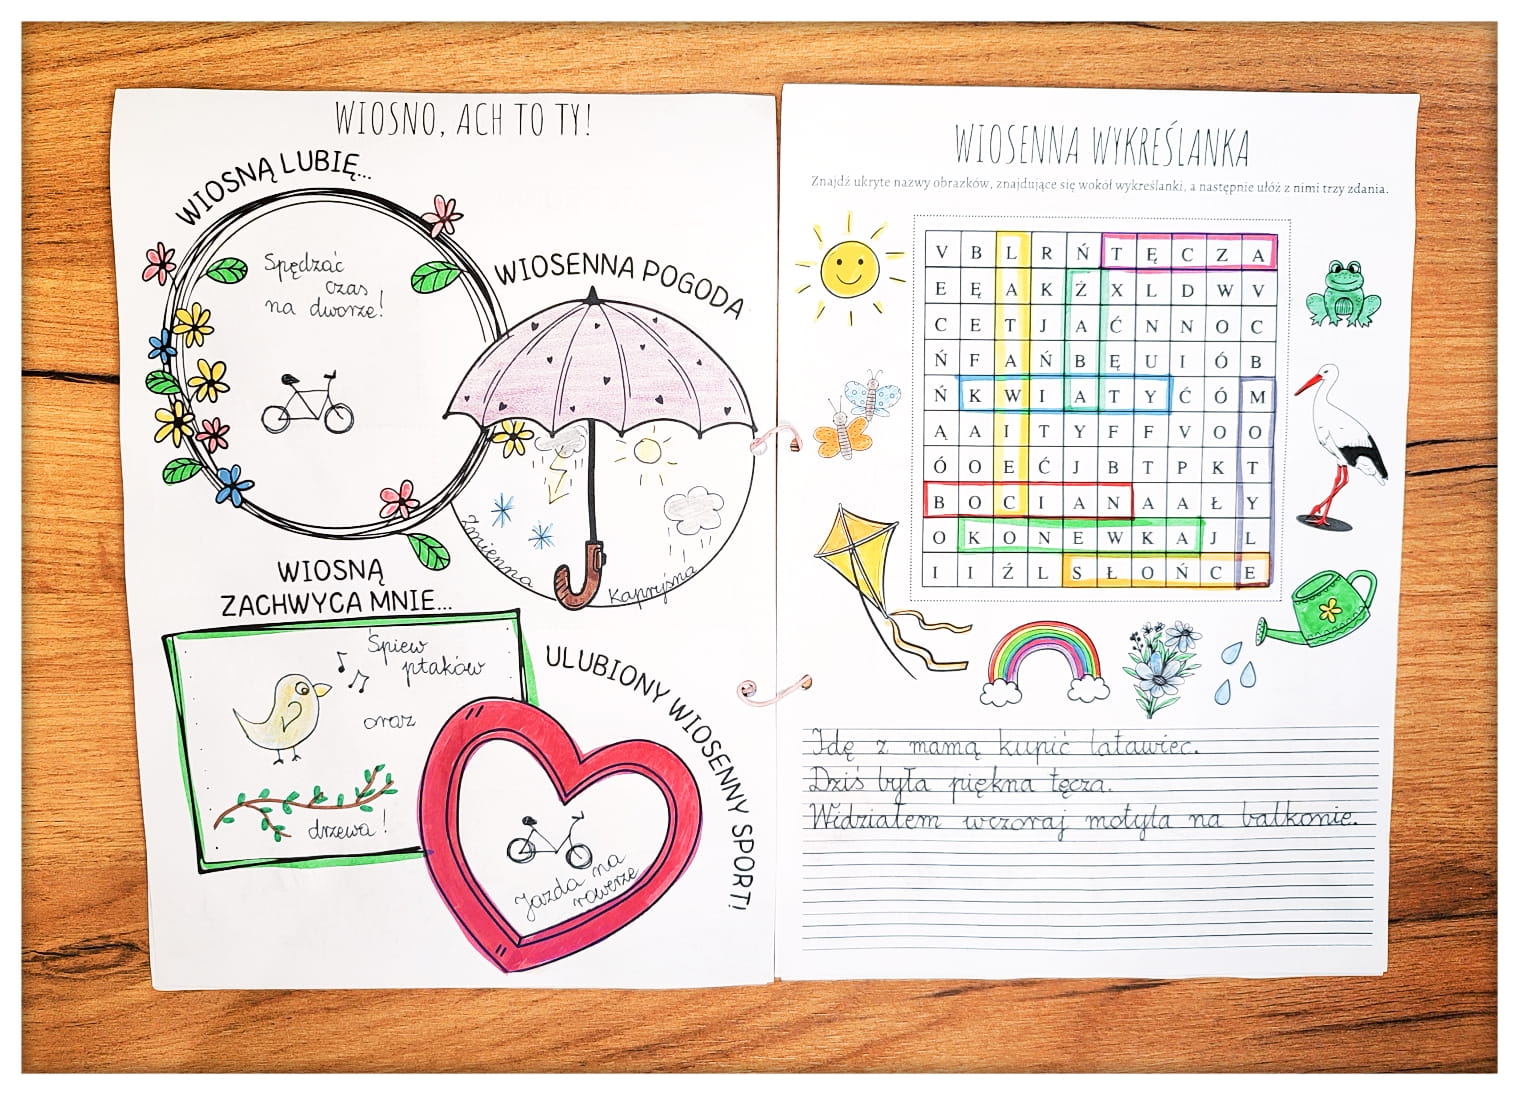 WIOSNO, ACH TO TY!
WIOSNĄ LUBIĘ...
Spędzać
czas
na dworze!
WIOSENNA POGODA
Zmienna
Kapryśna
WIOSNĄ
ZACHWYCA MNIE...
Śpiew
ptaków
oraz
drzewa!
ULUBIONY WIOSENNY SPORT!
Jazda na
rowerze
WIOSENNA WYKREŚLANKA
Znajdź ukryte nazwy obrazków, znajdujące się wokół wykreślanki, a następnie ułóż z nimi trzy zdania.
V B L R Ń T Ę C Z A
E Ę A K Ż X L D W V
C E T J A Ć N N O C
Ń F A Ń B Ę U I Ó B
Ń K W I A T Y Ć Ó M
Ą A I T Y F F V O O
Ó O E Ć J B T P K T
B O C I A N A A Ł Y
O K O N E W K A J L
I I Ź L S Ł O Ń C E
Idę z mamą kupić latawiec.
Dziś była piękna tęcza.
Widziałem wczoraj motyla na balkonie.